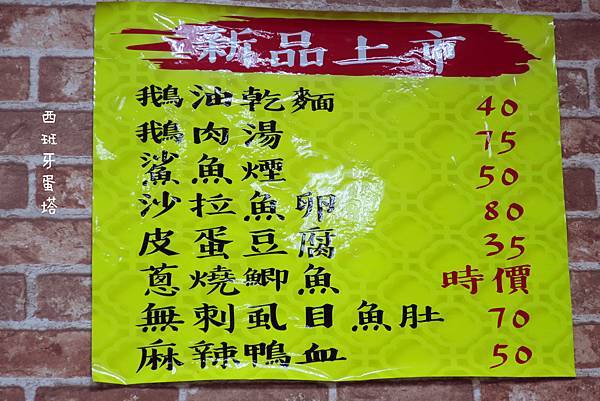 新品上市
鵝油乾麵 40
鵝肉湯 75
鯊魚煙 50
沙拉魚卵 80
皮蛋豆腐 35
蔥燒鯽魚 時價
無刺虱目魚肚 70
麻辣鴨血 50
西班牙蛋塔